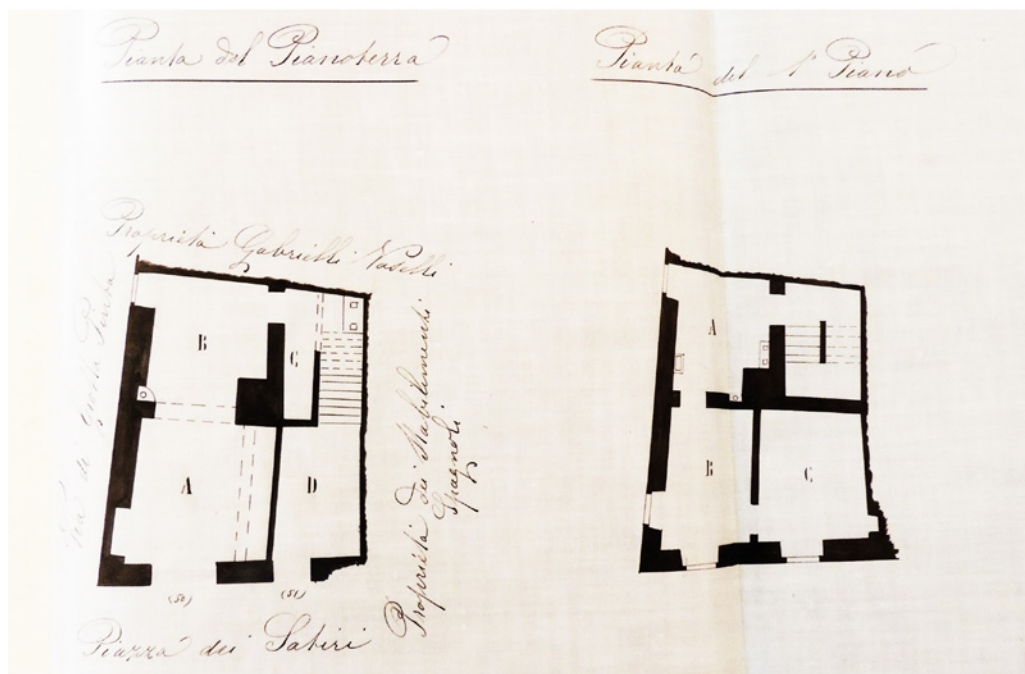 Pianta del Pianoterra
Pianta del 1° Piano
Proprietà Gabrielli Vaselli
Via di Grotta Pinta
B
C
A
D
Proprietà dei Stabilimenti
Spagnoli
(50)
(51)
Piazza dei Satiri
A
B
C